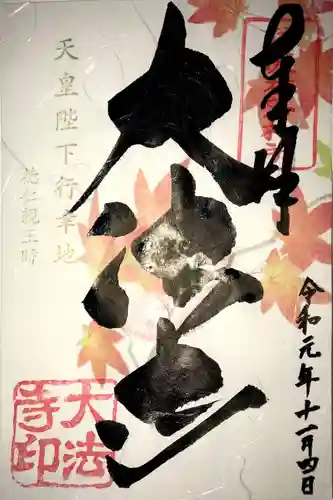 奉拝
令和元年十一月四日
大法
天皇陛下行幸地
徳仁親王時
大法
寺印